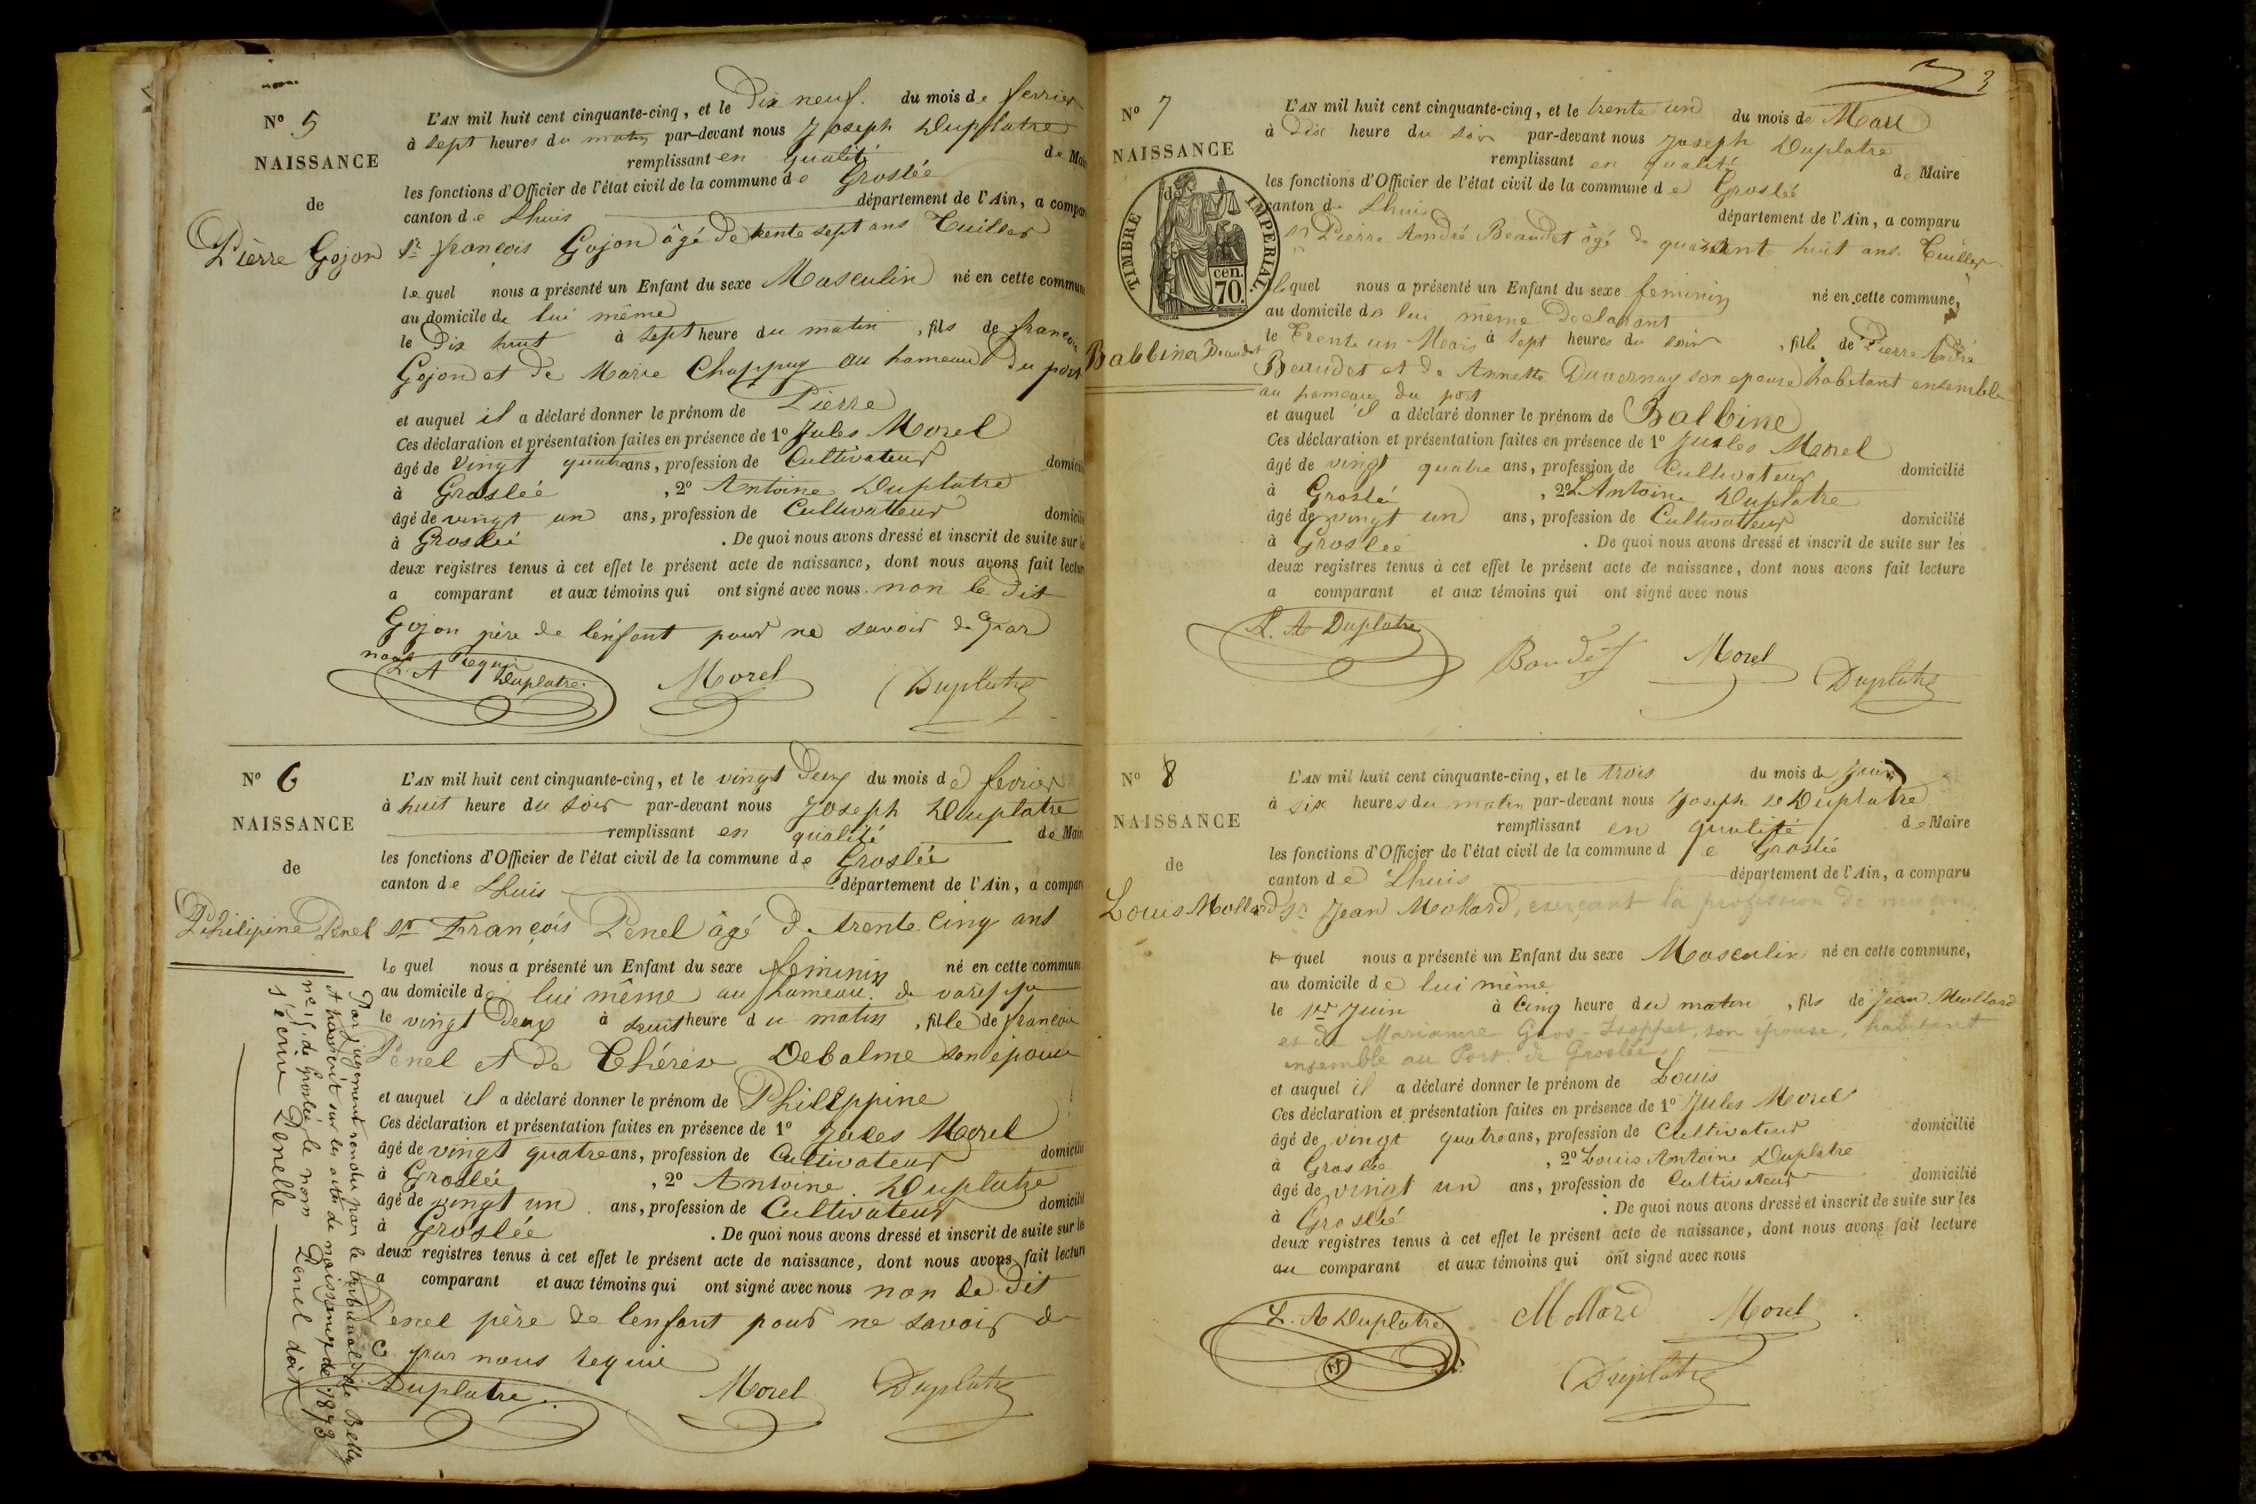 N° 5
NAISSANCE
de
Pierre Gojon
L'AN mil huit cent cinquante-cinq, et le Dix neuf du mois de fevrier
à sept heures du matin par-devant nous Joseph Duplatre
remplissant en qualité de Maire
les fonctions d'Officier de l'état civil de la commune de Groslée
canton de Lhuis département de l'Ain, a compar
Sr françois Gojon âgé de trente sept ans Tuillier
lequel nous a présenté un Enfant du sexe Masculin né en cette commune
au domicile de lui même
le Dix huit à sept heure du matin, fils de françois
Gojon et de Marie Chappuy au hameau du port
et auquel il a déclaré donner le prénom de Pierre
Ces déclaration et présentation faites en présence de 1° Jules Morel
âgé de vingt quatre ans, profession de Cultivateur domicilié
à Groslée, 2° Antoine Duplatre
âgé de vingt un ans, profession de Cultivateur domicilié
à Groslée. De quoi nous avons dressé et inscrit de suite sur les
deux registres tenus à cet effet le présent acte de naissance, dont nous avons fait lecture
a comparant et aux témoins qui ont signé avec nous non le dit
Gojon père de l'enfant pour ne savoir de ce par
nous requis
L. A Duplatre Morel Duplatre
N° 6
NAISSANCE
de
Philipine Penel
L'AN mil huit cent cinquante-cinq, et le vingt Deux du mois de fevrier
à huit heure du soir par-devant nous Joseph Duplatre
remplissant en qualité de Maire
les fonctions d'Officier de l'état civil de la commune de Groslée
canton de Lhuis département de l'Ain, a compar
Sr François Penel âgé de trente cinq ans
lequel nous a présenté un Enfant du sexe feminin né en cette commune
au domicile de lui même au hameau de
le vingt Deux à huit heure du matin, fille de françois
Penel et de Thérèse Debalme son épouse
et auquel il a déclaré donner le prénom de Philippine
Ces déclaration et présentation faites en présence de 1° Jules Morel
âgé de vingt quatre ans, profession de Cultivateur domicilié
à Groslée, 2° Antoine Duplatre
âgé de vingt un ans, profession de Cultivateur domicilié
à Groslée. De quoi nous avons dressé et inscrit de suite sur les
deux registres tenus à cet effet le présent acte de naissance, dont nous avons fait lecture
a comparant et aux témoins qui ont signé avec nous non le dit
Penel père de l'enfant pour ne savoir de
ce par nous requis
Duplatre Morel Duplatre
Par jugement rendu par le tribunal de Belley
sur les actes de naissance de 1873
de Groslée le nom Penel doit
s'écrire Penelle
3
N° 7
NAISSANCE
TIMBRE IMPERIAL
cen.
70.
Balbina Beaudet
L'AN mil huit cent cinquante-cinq, et le trente un du mois de Mars
à Dix heure du soir par-devant nous Joseph Duplatre
remplissant en qualité de Maire
les fonctions d'Officier de l'état civil de la commune de Groslée
canton de Lhuis département de l'Ain, a comparu
Sr Pierre André Beaudet âgé de quarante huit ans Tuillier
lequel nous a présenté un Enfant du sexe feminin né en cette commune,
au domicile de lui même Declarant
le Trente un Mars à sept heures du soir, fille de Pierre André
Beaudet et de Annette Duvernay son epouse habitant ensemble
au hameau du port
et auquel il a déclaré donner le prénom de Balbine
Ces déclaration et présentation faites en présence de 1° Jusles Morel
âgé de vingt quatre ans, profession de Cultivateur domicilié
à Groslé, 2° L Antoine Duplatre
âgé de vingt un ans, profession de Cultivateur domicilié
à Groslée. De quoi nous avons dressé et inscrit de suite sur les
deux registres tenus à cet effet le présent acte de naissance, dont nous avons fait lecture
a comparant et aux témoins qui ont signé avec nous
L. A Duplatre Baudet Morel Duplatre
N° 8
NAISSANCE
de
Louis Mollard
L'AN mil huit cent cinquante-cinq, et le trois du mois de Juin
à six heures du matin par-devant nous Joseph Duplatre
remplissant en qualité de Maire
les fonctions d'Officier de l'état civil de la commune de Groslée
canton de Lhuis département de l'Ain, a comparu
Sr Jean Mollard, exerçant la profession de maçon
lequel nous a présenté un Enfant du sexe Masculin né en cette commune,
au domicile de lui même
le 1er Juin à Cinq heure du matin, fils de Jean Mollard
et de Marianne son épouse, habitant
ensemble au Port de Groslée
et auquel il a déclaré donner le prénom de Louis
Ces déclaration et présentation faites en présence de 1° Jules Morel
âgé de vingt quatre ans, profession de Cultivateur domicilié
à Groslée, 2° Louis Antoine Duplatre
âgé de vingt un ans, profession de Cultivateur domicilié
à Groslée. De quoi nous avons dressé et inscrit de suite sur les
deux registres tenus à cet effet le présent acte de naissance, dont nous avons fait lecture
au comparant et aux témoins qui ont signé avec nous
L. A Duplatre Mollard Morel
Duplatre